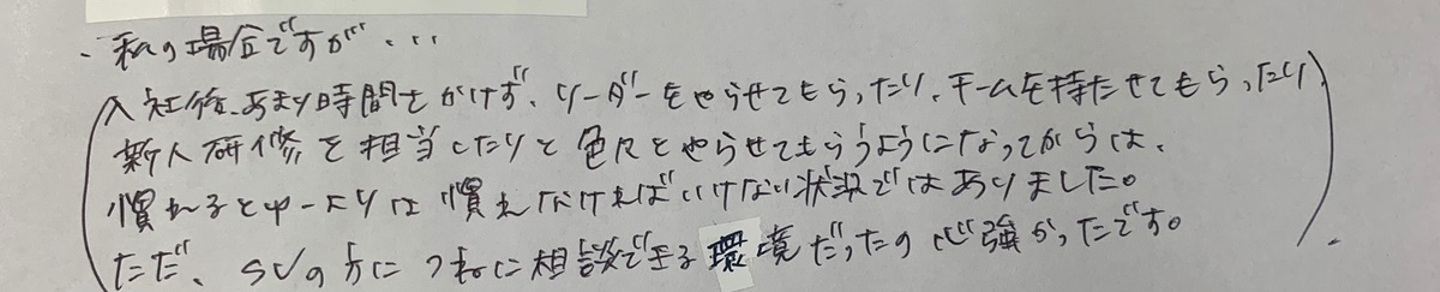 、私の場合ですが...
入社後、あまり時間をかけず、リーダーをやらせてもらったり、チームを持たせてもらったり
新人研修を担当したりと色々とやらせてもらうようになってからは、
慣れるとゆーよりは慣れなければいけない状況ではありました。
ただ、SVの方につねに相談できる環境だったの心強かったです。